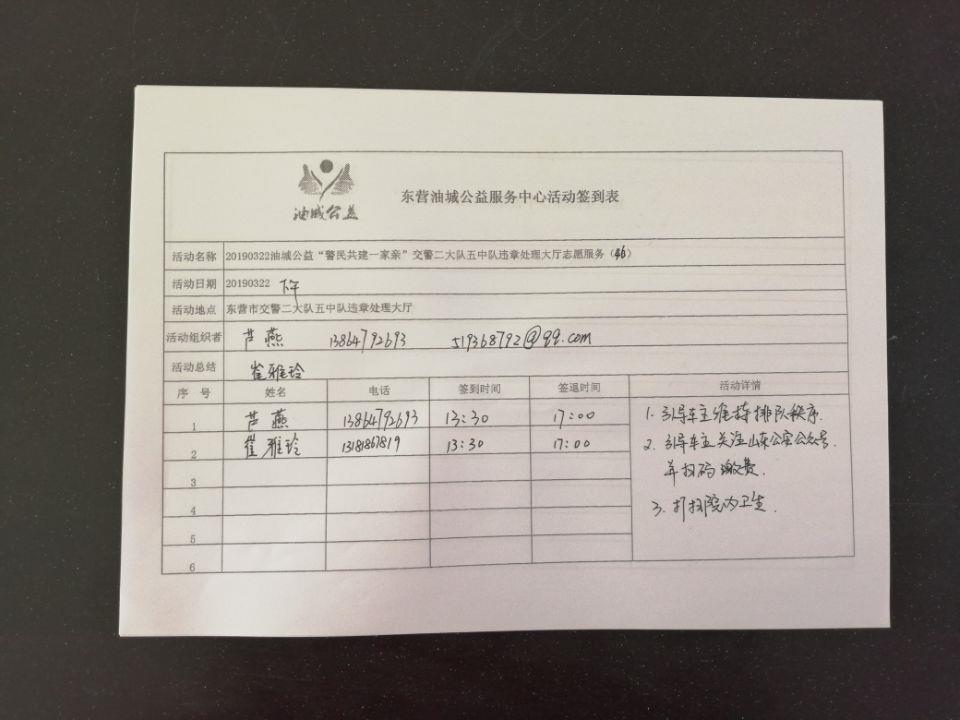 油城公益
东营油城公益服务中心活动签到表
活动名称 20190322油城公益“警民共建一家亲”交警二大队五中队违章处理大厅志愿服务（46）
活动日期 20190322 下午
活动地点 东营市交警二大队五中队违章处理大厅
活动组织者 芦燕 13864792693 519368792@qq.com
活动总结 崔雅玲
序 号 姓名 电话 签到时间 签退时间 活动详情
1 芦燕 13864792693 13:30 17:00 1. 引导车主维持排队秩序.
2 崔雅玲 13181867819 13:30 17:00 2. 引导车主关注山东公安公众号.
并扫码缴费.
3
4 3. 打扫院内卫生.
5
6